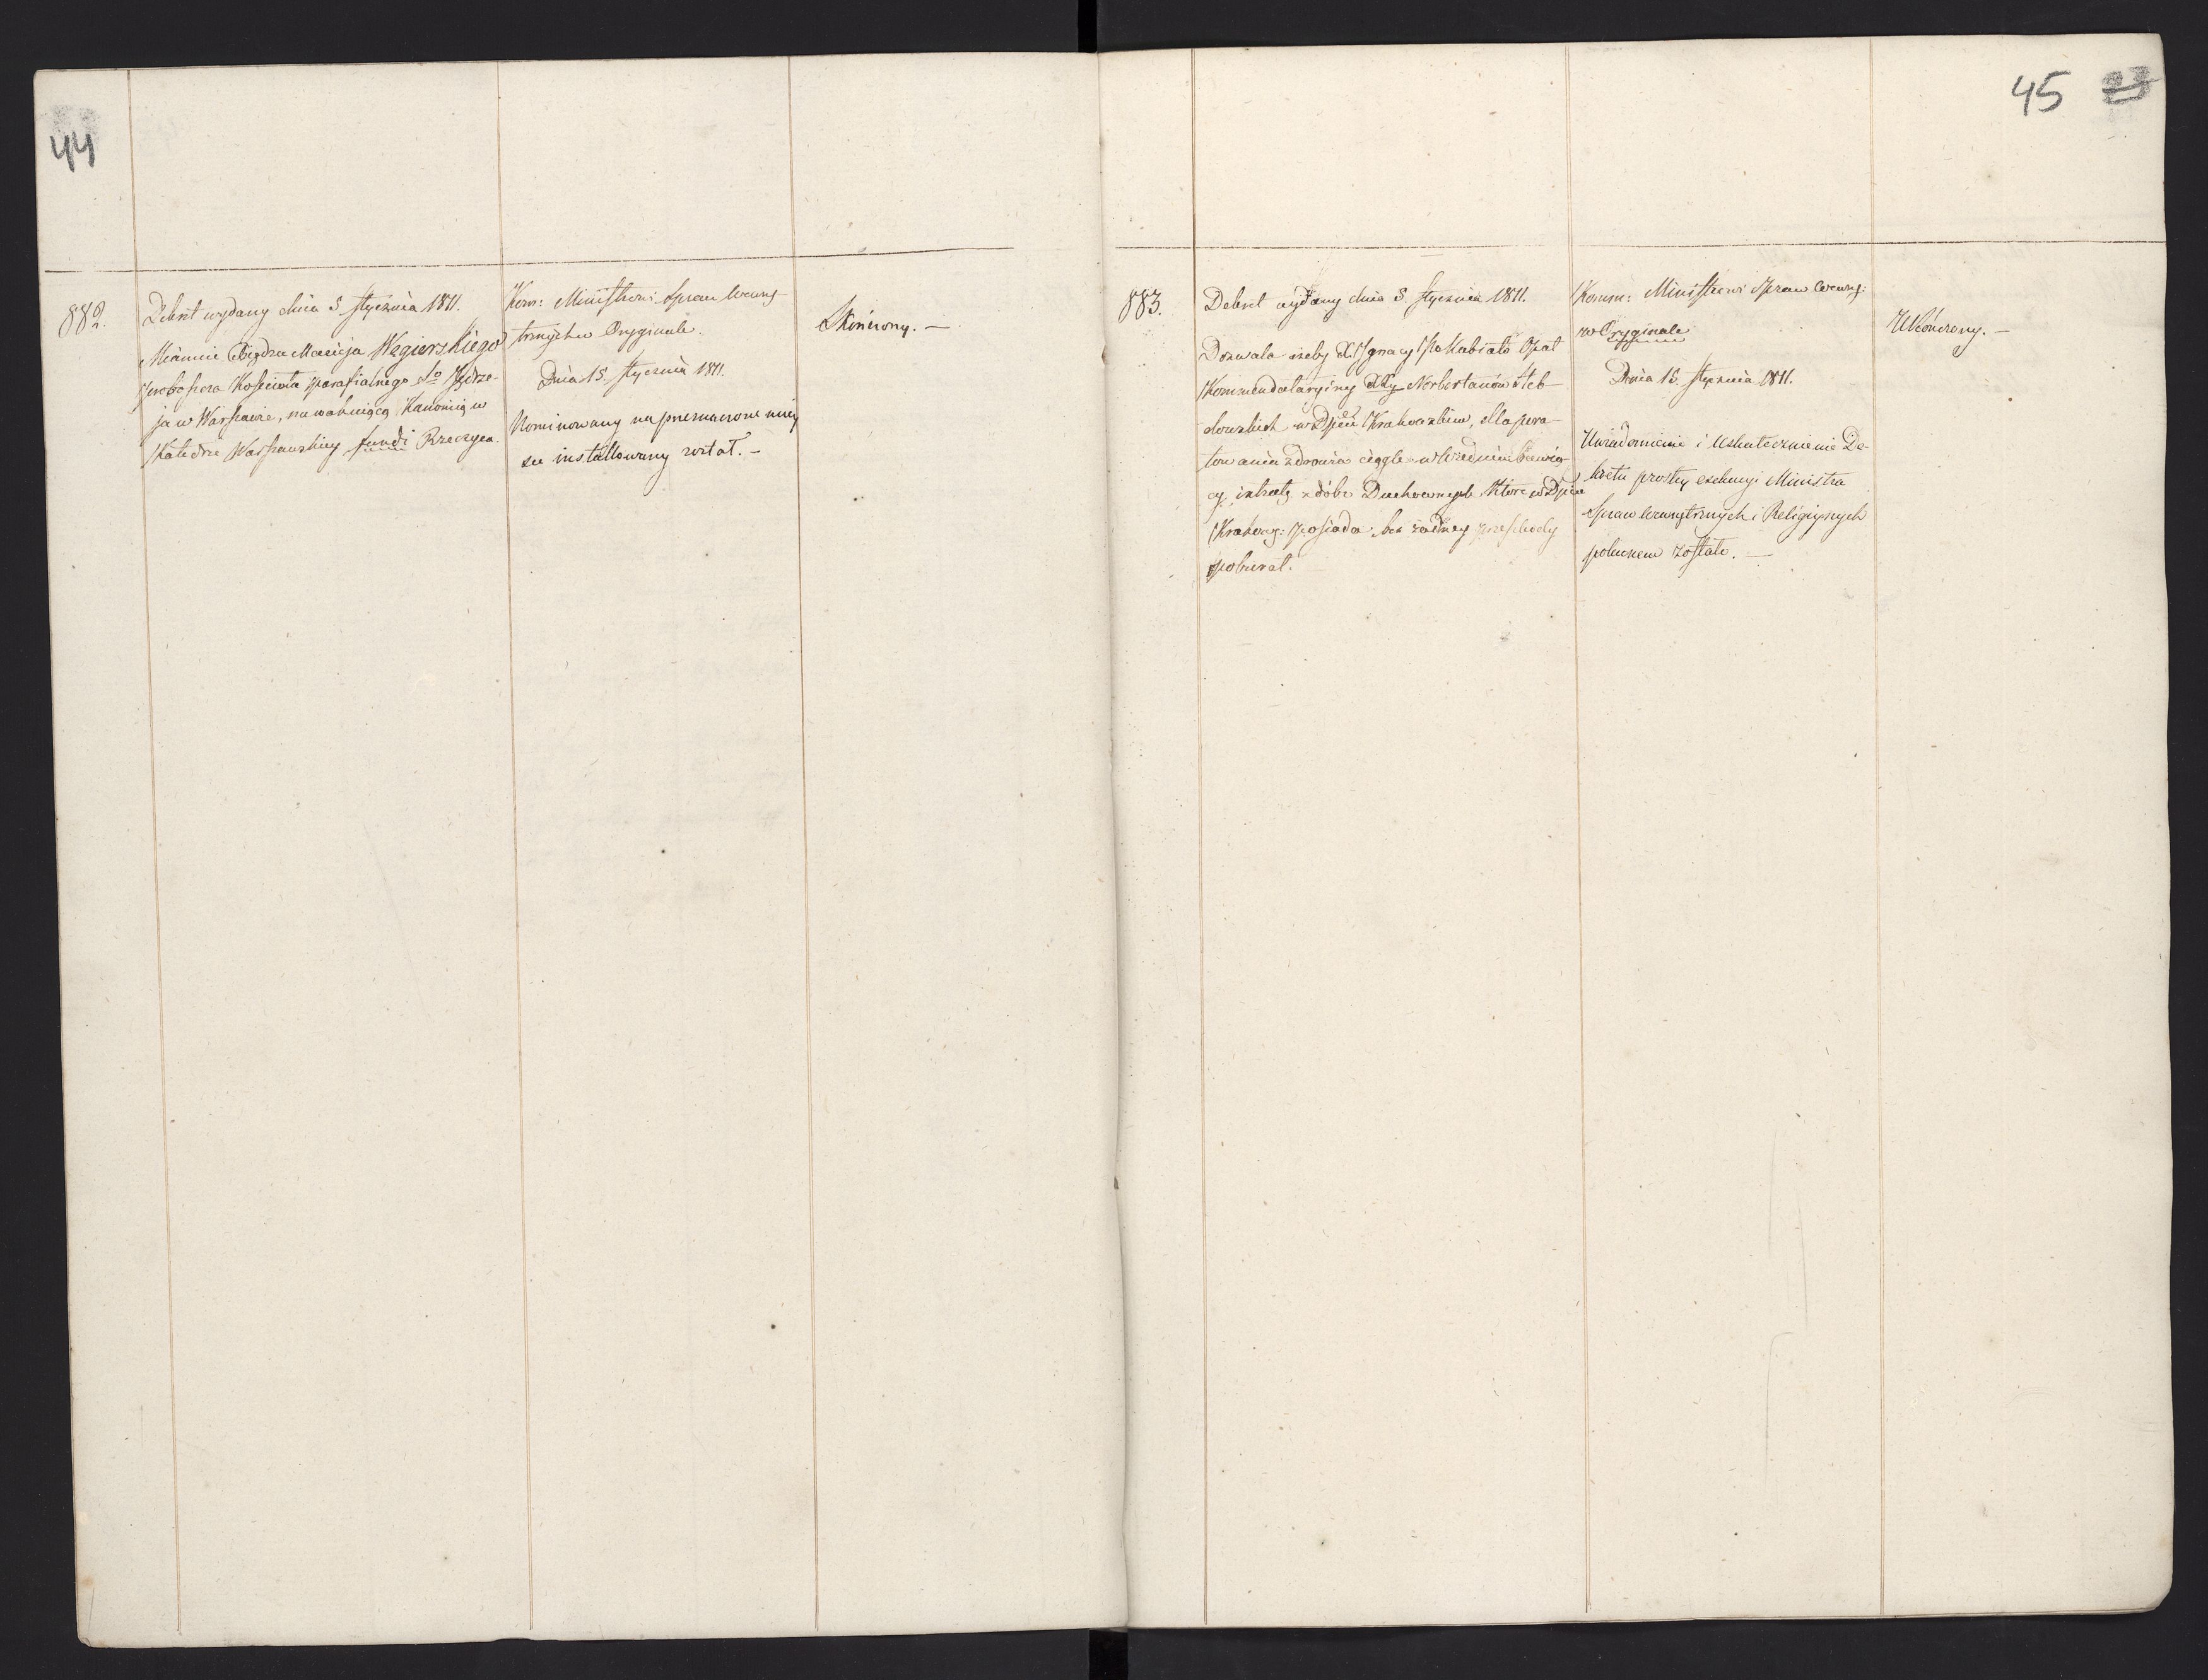 44
882.
Dekret wydany dnia 5 stycznia 1811.
Mianuie Xiędza Macieja Węgierskiego
proboszcza Kościoła parafialnego Sgo Jędrze-
ja w Warszawie, na wakuiącą Kanonią w
Katedrze Warszawskiey fundi Rzeczyca.
Kom: Ministrowi Spraw Wewnę-
trznych w Oryginale.
Dnia 15. stycznia 1811.
Nominowany na przeznaczone miey
sce installowany został. –
Skończony. –
45 23
883.
Dekret wydany dnia 5. stycznia 1811.
Dozwala iżeby X. Ignacy Pokubiato Opat
Kommendataryiny XXy Norbertanów Heb-
dowskich w Dpcie Krakowskim, dla pora-
towania zdrowia ciągle w Wiedniu bawią-
cy, intratę z dóbr Duchownych które w Dpcie
Krakows: posiada, bez żadney przeszkody
pobierał.
Komm: Ministrowi Spraw Wewnę:
w Oryginale
Dnia 15. stycznia 1811.
Uwiadomienie i Uskutecznienie De-
kretu prostey exekucyi Ministra
Spraw Wewnętrznych i Religiynych
polecone zostało. –
Ukończony. –